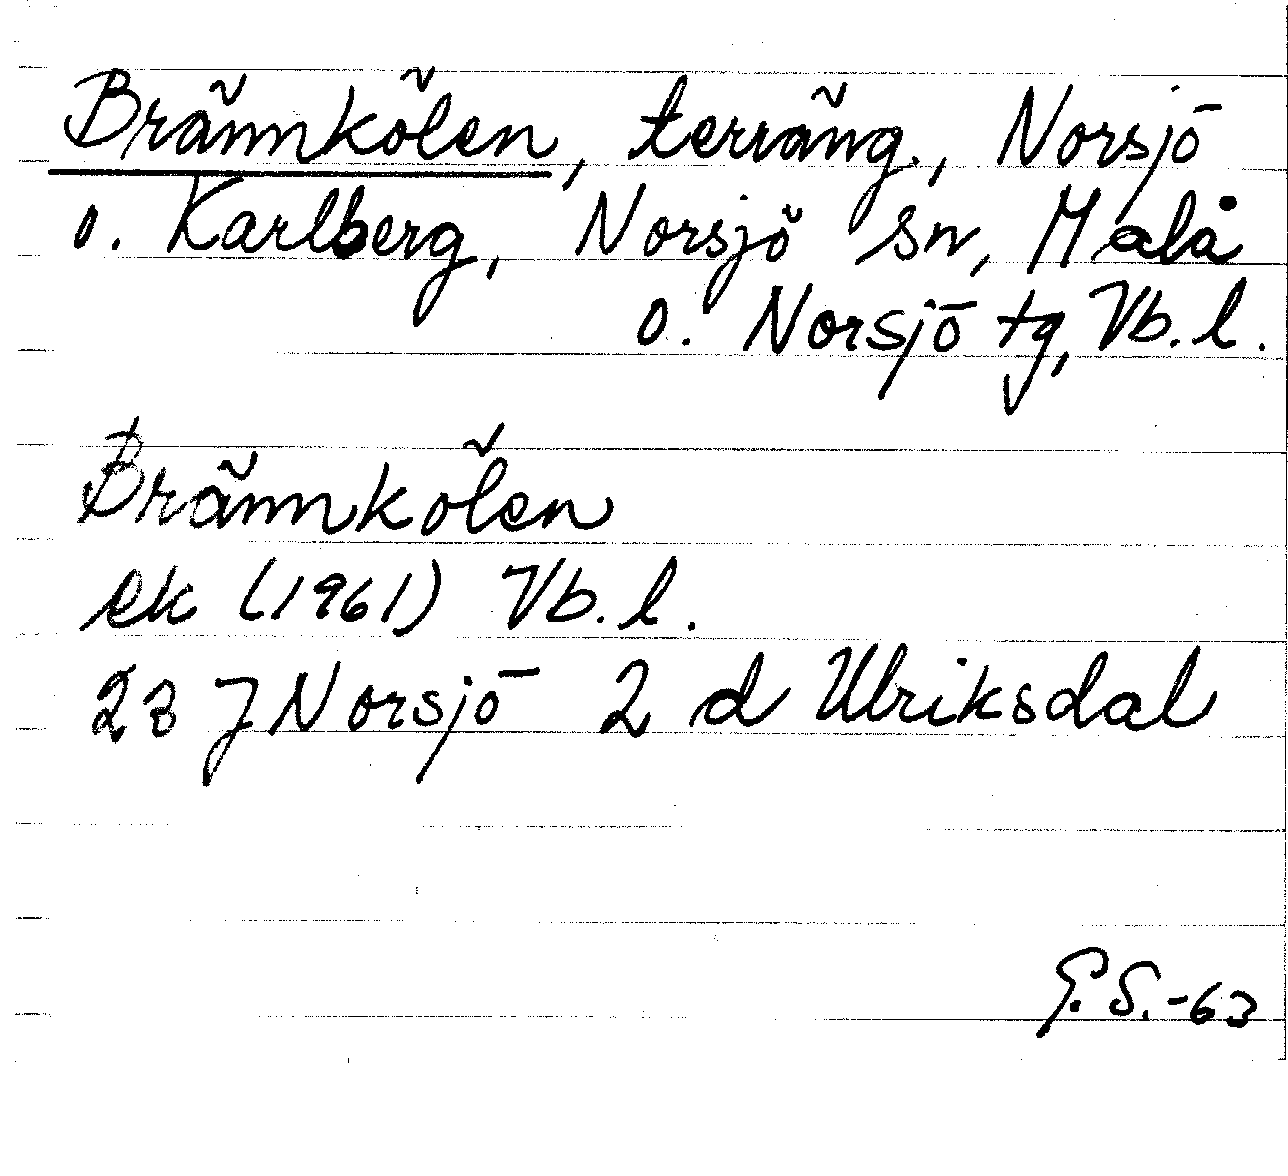 Brännkölen, terräng., Norsjö
o. Karlberg, Norsjö sn, Malå
o. Norsjö tg, Vb. l.
Brännkölen
ek (1961) Vb. l.
23 J Norsjö 2 d Ulriksdal
G.S.-63